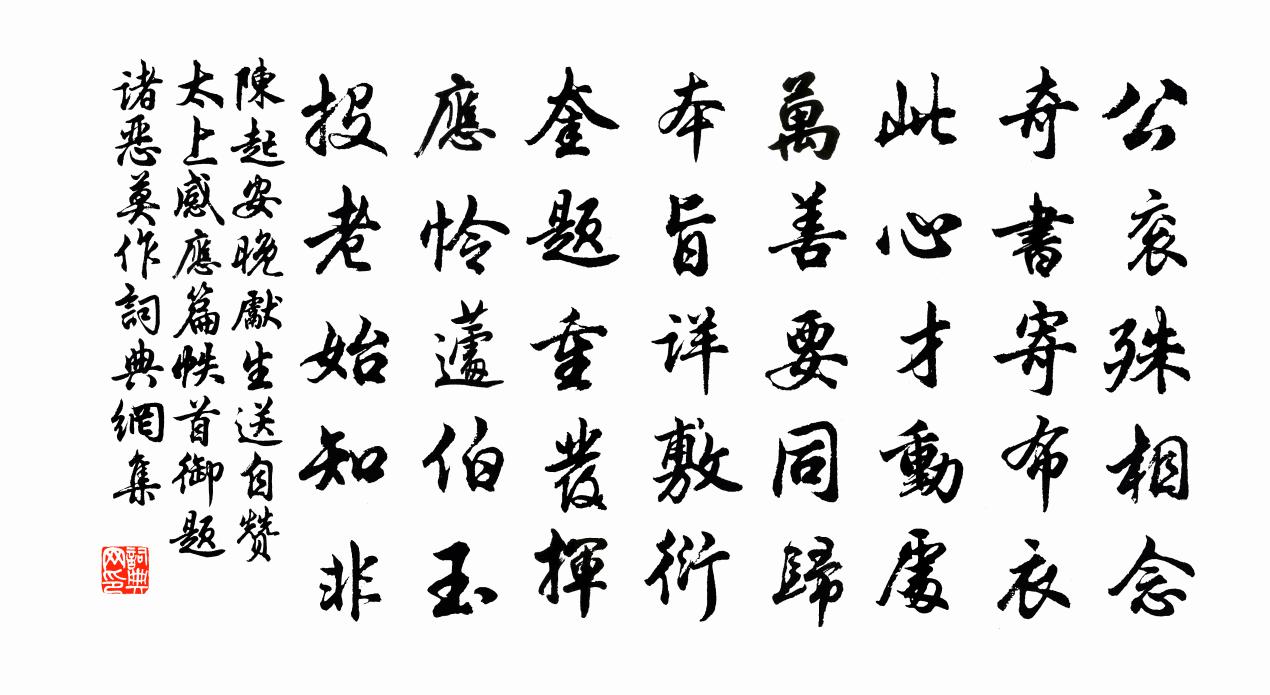 公衮殊相念
奇書寄布衣
此心才動處
萬善要同歸
本旨詳敷衍
奎題重發揮
應怜蘧伯玉
投老始知非
陳起安晚獻生送自贊
太上感應篇帙首御題
諸惡莫作詞典網集
詞典
网印